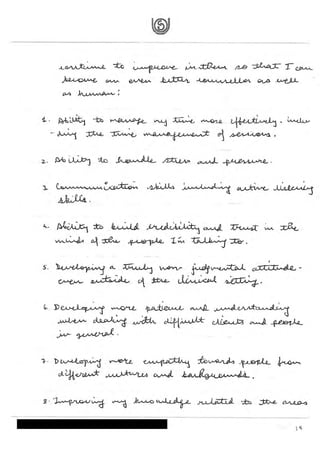 continue to improve in them so that I can
become an even better counsellor as well
as human:
1. Ability to manage my time more effectively, inclu
-ding the time management of sessions.
2. Ability to handle stress and pressure.
3. Communication skills including active listening
skills.
4. Ability to build credibility and trust in the
minds of the people I'm talking to.
5. Developing a truly non-judgmental attitude -
even outside of the clinical setting.
6. Developing more patience and understanding
when dealing with difficult clients and people
in general.
7. Developing more empathy towards people from
different cultures and backgrounds.
8. Improving my knowledge related to the areas
19